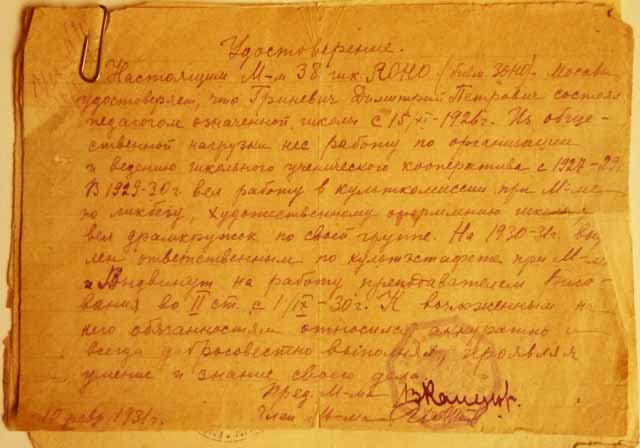 Удостоверение.
Настоящим М-м 38 шк. ЯОНО Москвы
удостоверяет, что Гриневич Димитрий Петрович состоял
педагогом означенной школы с 15/XI-1926г. Из обще-
ственной нагрузки нес работу по организации
и ведению школьного ученического кооператива с 1927-29г.
В 1929-30г. вел работу в культкомиссии при М-ме
по ликбезу, художественному оформлению школы
вел драмкружок по своей группе. На 1930-31г. вы
лен ответственным по культэстафете при М-м
и Выдвинут на работу преподавателем Рисо-
вания во II ст. с 1/IX-30г. К возложенным на
него обязанностям относился аккуратно и
всегда добросовестно выполнял, проявляя
умение и знание своего дела.
Пред. М-ма
февр. 1931г. Член М-ма